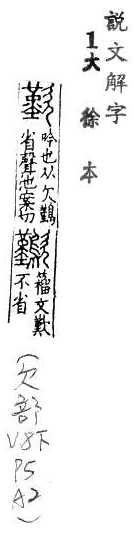 說文解字
1大徐本
歎 吟也从欠𪄿
省聲池案切
籒文歎
不省
(欠部
V8下
P5
A2)